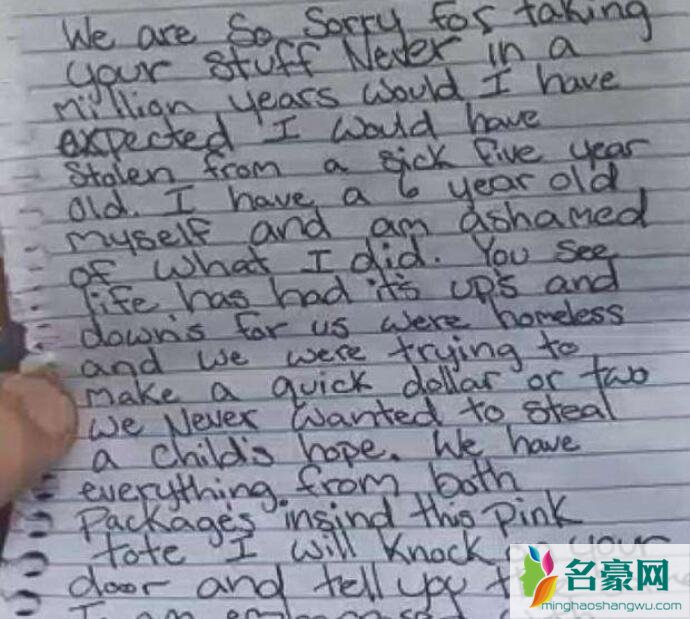 We are So Sorry for taking
your Stuff Never in a
million years would I have
expected I would have
Stolen from a sick five year
old. I have a 6 year old
myself and am ashamed
of what I did. You see
life has had it's up's and
down's for us were homeless
and we were trying to
make a quick dollar or two
we Never wanted to steal
a child's hope. We have
everything from both
Packages insind this pink
tote I will knock on your
door and tell you
I am
名豪网
minghaoshangwu.com